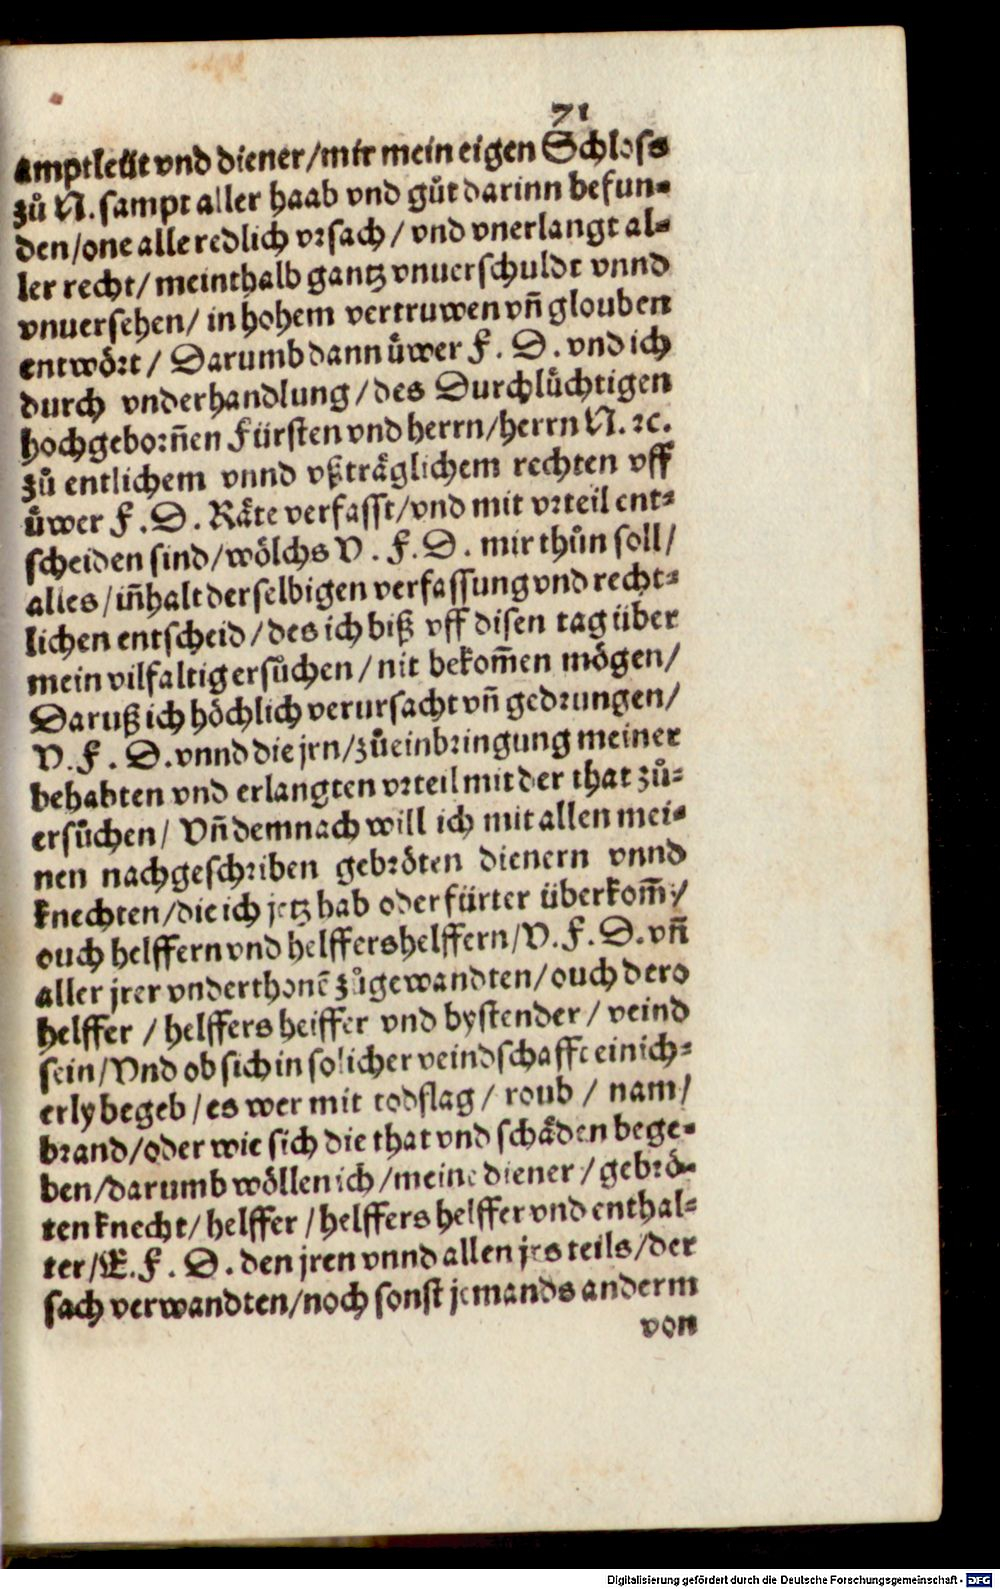 71
amptleüt vnd diener/mir mein eigen Schloss
zů N. sampt aller haab vnd gůt darinn befun-
den/one alle redlich vrsach/ vnd vnerlangt al-
ler recht/ meinthalb gantz vnuerschuldt vnnd
vnuersehen/ in hohem vertruwen vñ glouben
entwört/ Darumb dann üwer F. D. vnd ich
durch vnderhandlung/des Durchlüchtigen
hochgeborñen Fürsten vnd herrn/herrn N. ꝛc.
zů entlichem vnnd vßträglichem rechten vff
üwer F. D. Räte verfasst/vnd mit vrteil ent-
scheiden sind/wölchs V. F. D. mir thůn soll/
alles/iñhalt derselbigen verfassung vnd recht-
lichen entscheid/des ich biß vff disen tag über
mein vilfaltig ersůchen/ nit bekom̃en mögen/
Daruß ich höchlich verursacht vñ gedrungen/
V. F. D. vnnd die jrn/zůeinbringung meiner
behabten vnd erlangten vrteil mit der that zů-
ersůchen/ Vñ demnach will ich mit allen mei-
nen nachgeschriben gebröten dienern vnnd
knechten/die ich jetz hab oder fürter überkom̃/
ouch helffern vnd helffershelffern/V. F. D. vñ
aller jrer vnderthonẽ zůgewandten/ouch dero
helffer / helffers helffer vnd bystender/ veind
sein/Vnd ob sich in solicher veindschafft einich-
erly begeb/es wer mit todslag/ roub / nam/
brand/oder wie sich die that vnd schäden bege-
ben/darumb wöllen ich/meine diener/gebrö-
ten knecht/helffer/helffers helffer vnd enthal-
ter/E. F. D. den jren vnnd allen jrs teils/der
sach verwandten/noch sonst jemands anderm
von
Digitalisierung gefördert durch die Deutsche Forschungsgemeinschaft - DFG